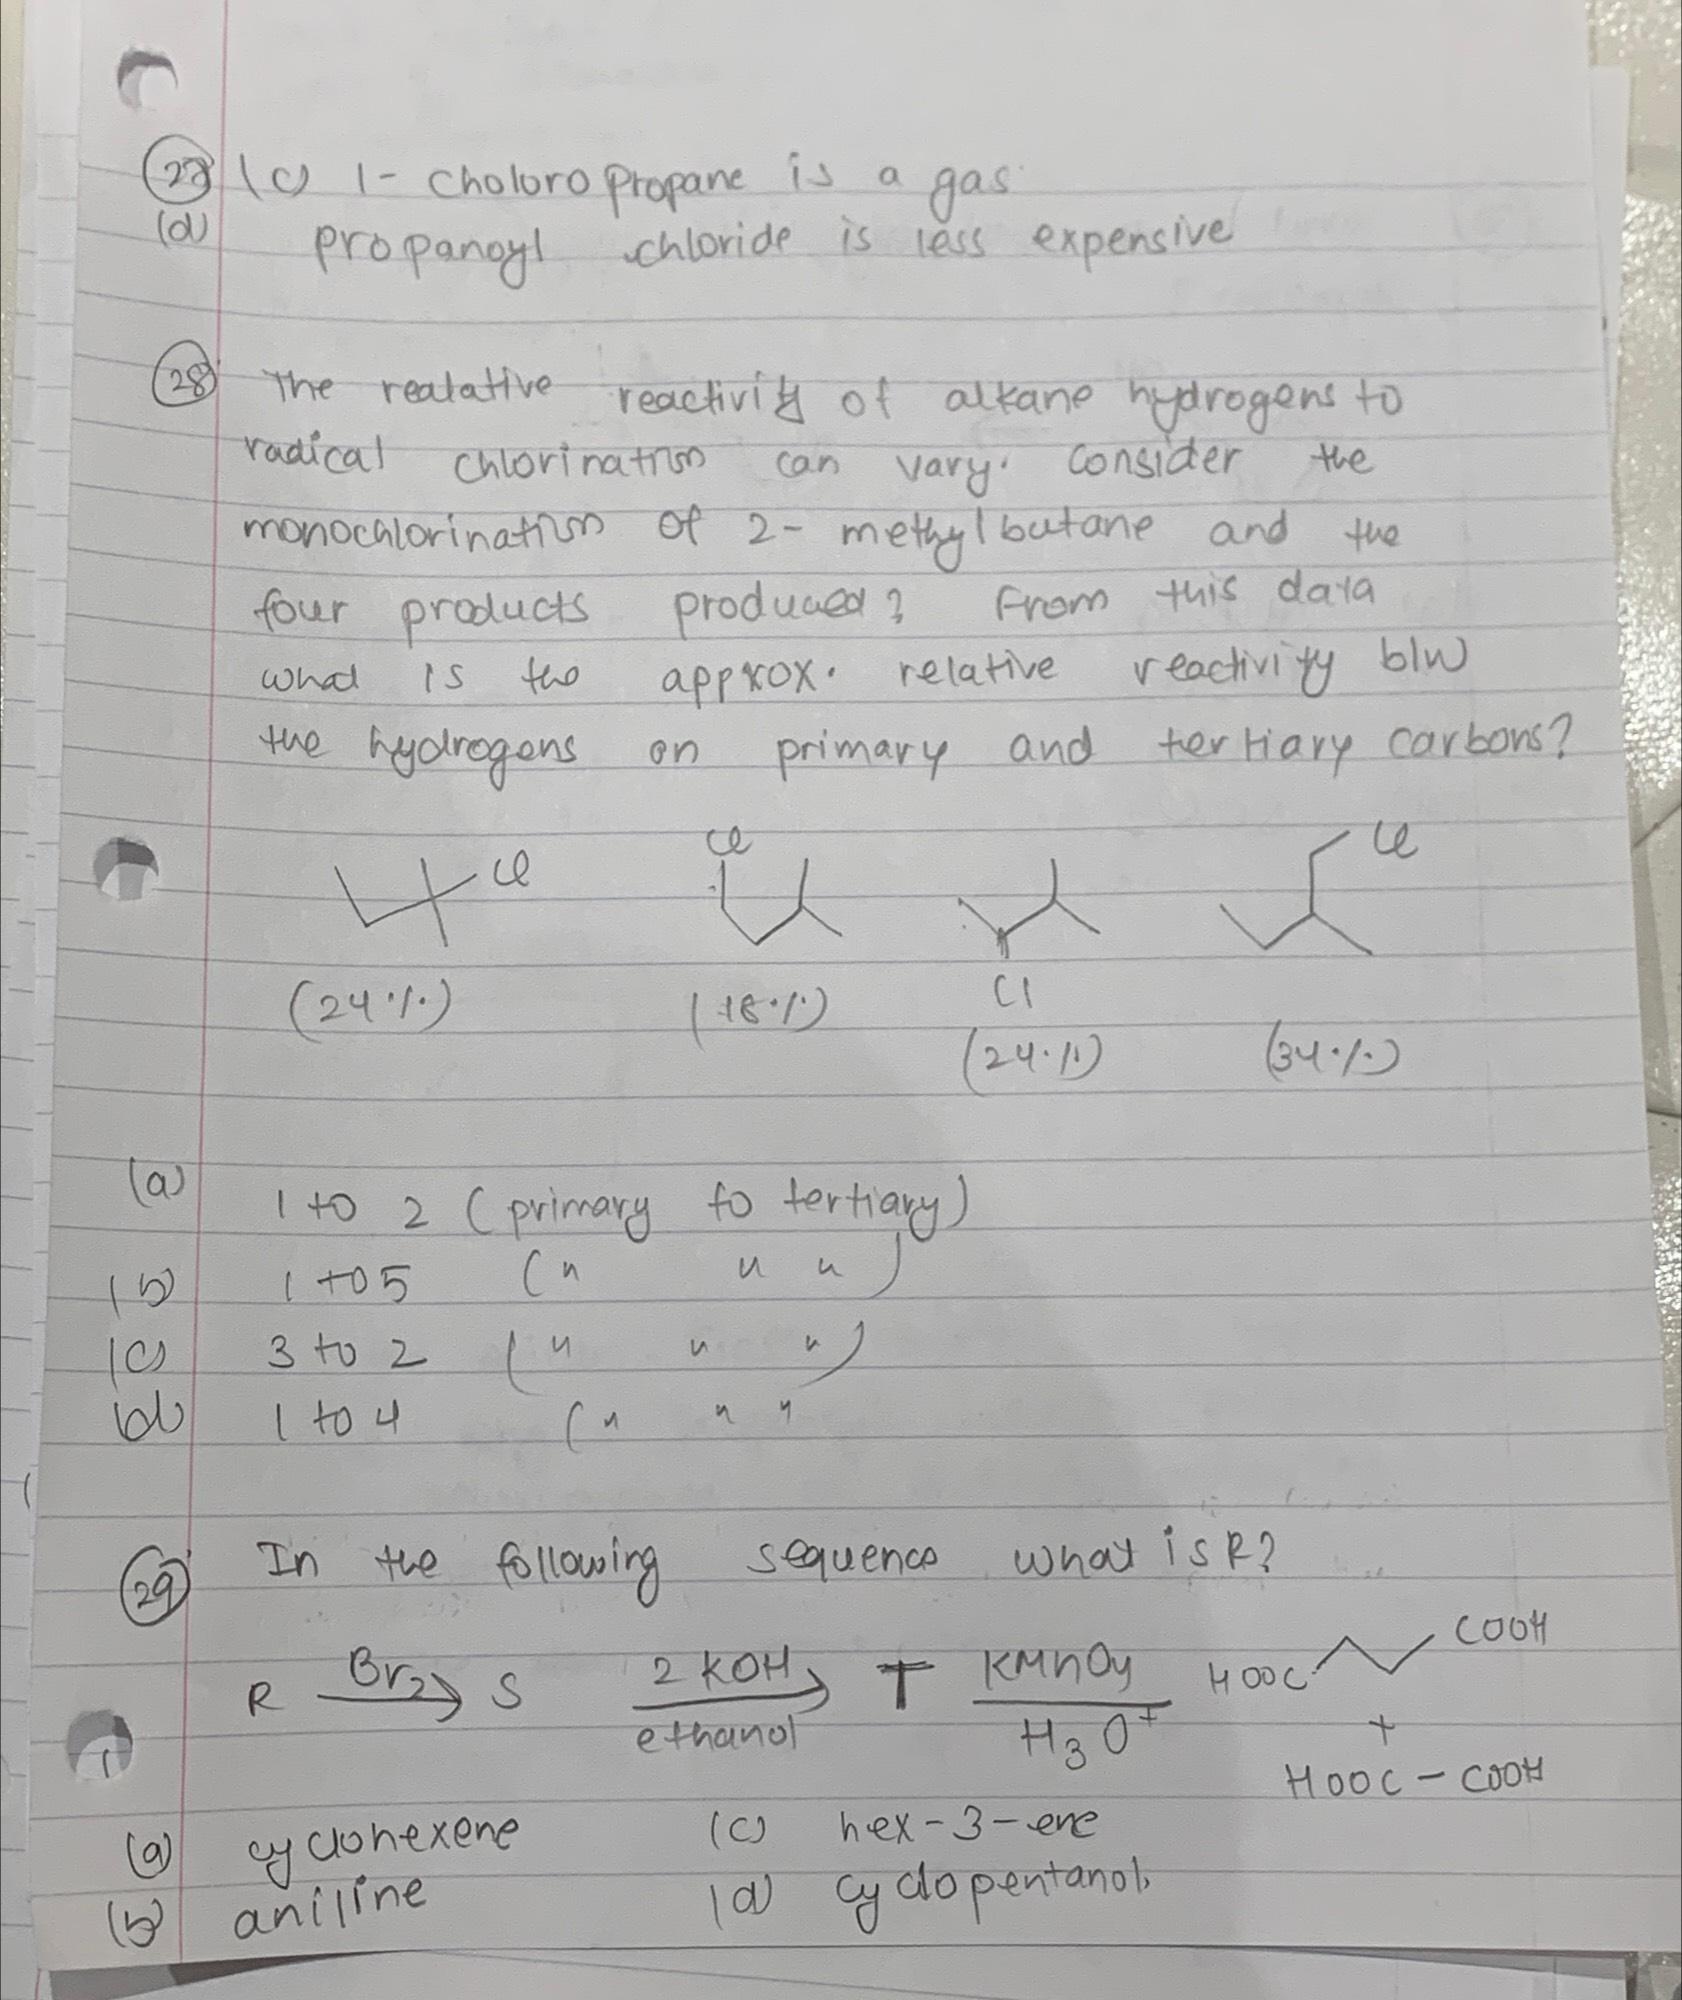 27 (c) 1- choloro propane is a gas
(d) propanoyl chloride is less expensive
28 The realative reactivity of alkane hydrogens to
radical chlorination can vary. Consider the
monochlorination of 2- methylbutane and the
four products produced? From this data
what is the approx. relative reactivity b/w
the hydrogens on primary and tertiary carbons?
Cl Cl Cl Cl
(24%) (18%) (24%) (34%)
(a) 1 to 2 (primary to tertiary)
(b) 1 to 5 (" " ")
(c) 3 to 2 (" " ")
(d) 1 to 4 (" " "
29 In the following sequence what is R?
R Br2 S 2 KOH ethanol T KMnO4 H3O+ HOOC COOH
+
HOOC - COOH
(a) cyclohexene (c) hex-3-ene
(b) aniline (d) cyclopentanol.